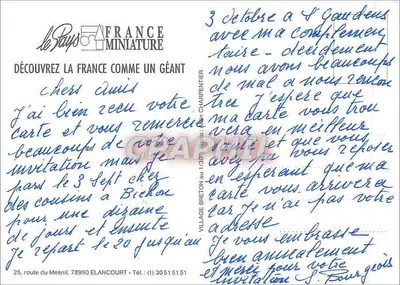 le Pays FRANCE
MINIATURE
DÉCOUVREZ LA FRANCE COMME UN GÉANT
chers amis
J'ai bien reçu votre
carte et vous remercie
beaucoups de votre
invitation mais je
pars le 3 Sept chez
des cousins a
pour une dizaine
de jours et ensuite
Je repart le 20 jusqu'au
25, route du Mesnil, 78990 ÉLANCOURT - Tél.: (1) 30 51 51 51
VILLAGE BRETON au 1/30 CHARPENTIER
3 Octobre a St Gaudens
avec ma complemen
taire - decidement
nous avons beaucoups
de mal a nous rencon
trer j'espère que
ma carte vous trou
vera en meilleur
santé et que vous
avez vous reposer
en esperant que ma
carte vous arrivera
car Je n'ai pas votre
adresse
Je vous embrasse
bien amicalement
et merci pour votre
invitation S. Bourgeois